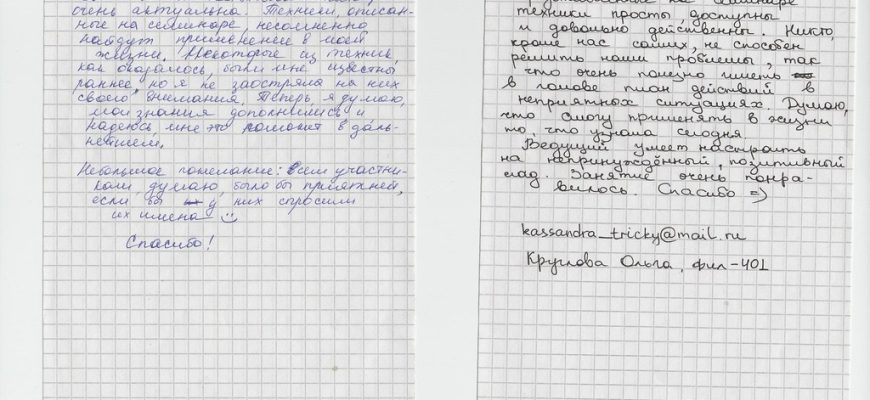 очень актуальна. Техники, описан-
ные на семинаре, несомненно
найдут применение в моей
жизни. Некоторые из техник,
как оказалось, были мне известны
раннее, но я не заостряла на них
своего внимания. Теперь, я думаю,
мои знания дополнились и
надеюсь, мне это поможет в даль-
нейшем.
Небольшое пожелание: всем участни-
кам, думаю, было бы приятней,
если бы у них спросили
их имена
Спасибо!
на семинаре
техники просты, доступны
и довольно действенны. Никто,
кроме нас самих, не способен
решить наши проблемы, так
что очень полезно иметь
в голове план действий в
неприятных ситуациях. Думаю,
что смогу применять в жизни
то, что узнала сегодня.
Ведущий умеет настроить
на непринуждённый, позитивный
лад. Занятие очень понра-
вилось. Спасибо =)
kassandra_tricky@mail.ru
Круглова Ольга, фил-401